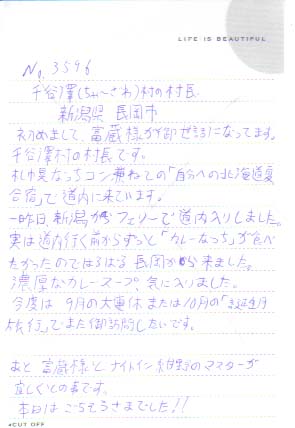 LIFE IS BEAUTIFUL
No. 3596
千谷澤(ちゃーざわ)村の村長
新潟県 長岡市
初めまして、富蔵様が御世話になってます。
千谷澤村の村長です。
札幌なっちコン兼ねての「自分への北海道夏
合宿」で道内に来ています。
一昨日新潟からフェリーで道内入りしました。
実は道内行く前からずっと「カレーなっち」が食べ
たかったのではるばる長岡から来ました。
濃厚なカレースープ気に入りました。
今度は 9月の大連休または10月の
旅行」でまた御訪問したいです。
あと富蔵様とナイトイン紺野のマスターが
宜しくとの事です。
本日はごちそうさまでした!!
CUT OFF